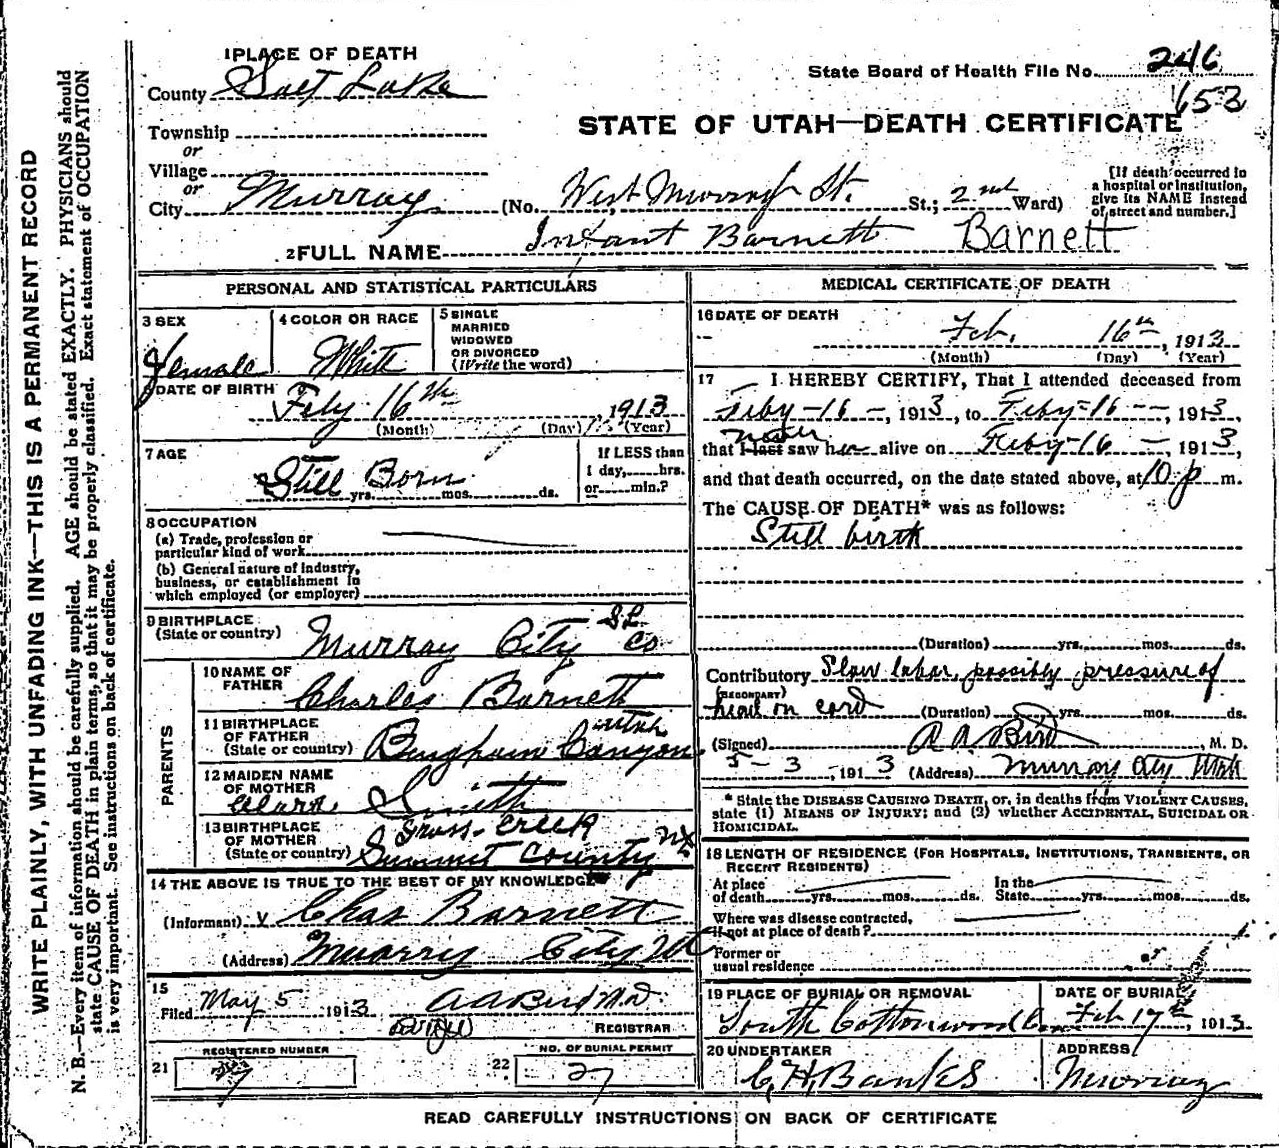 WRITE PLAINLY, WITH UNFADING INK—THIS IS A PERMANENT RECORD
N. B.—Every item of information should be carefully supplied. AGE should be stated EXACTLY. PHYSICIANS should
state CAUSE OF DEATH in plain terms, so that it may be properly classified. Exact statement of OCCUPATION
is very important. See instructions on back of certificate.
1 PLACE OF DEATH
County Salt Lake
Township
or
Village
or
City Murray
State Board of Health File No. 246
653
STATE OF UTAH—DEATH CERTIFICATE
(No. West Murray St. St.; 2nd Ward)
[If death occurred in
a hospital or institution,
give its NAME instead
of street and number.]
2 FULL NAME Infant Barnett Barnett
PERSONAL AND STATISTICAL PARTICULARS
3 SEX
Female
4 COLOR OR RACE
White
5 SINGLE
MARRIED
WIDOWED
OR DIVORCED
(Write the word)
DATE OF BIRTH
Feby 16th, 1913
(Month) (Day) (Year)
7 AGE
Still Born
yrs. mos. ds.
If LESS than
1 day, hrs.
or min.?
8 OCCUPATION
(a) Trade, profession or
particular kind of work
(b) General nature of industry,
business, or establishment in
which employed (or employer)
9 BIRTHPLACE
(State or country) Murray City S L Co
PARENTS
10 NAME OF
FATHER Charles Barnett
11 BIRTHPLACE
OF FATHER
(State or country) Bingham Canyon Utah
12 MAIDEN NAME
OF MOTHER
Clara Smith
13 BIRTHPLACE
OF MOTHER
(State or country) Grass Creek
Summit County
14 THE ABOVE IS TRUE TO THE BEST OF MY KNOWLEDGE
(Informant) Chas Barnett
(Address) Muarry City Ut
15
Filed May 5 1913 A A Bird M D
REGISTRAR
21 REGISTERED NUMBER
22 NO. OF BURIAL PERMIT
27
MEDICAL CERTIFICATE OF DEATH
16 DATE OF DEATH
Feb. 16th, 1913
(Month) (Day) (Year)
17 I HEREBY CERTIFY, That I attended deceased from
Feby-16-, 1913, to Feby-16--, 1913,
that I last never saw her alive on Feby-16- 1913,
and that death occurred, on the date stated above, at 10 p m.
The CAUSE OF DEATH* was as follows:
Still birth
(Duration) yrs. mos. ds.
Contributory Slow labor, possibly pressure of
(SECONDARY)
head on cord (Duration) yrs. mos. ds.
(Signed) A A Bird, M. D.
5-3-, 1913 (Address) Murray City Utah
* State the DISEASE CAUSING DEATH, or, in deaths from VIOLENT CAUSES,
state (1) MEANS OF INJURY; and (2) whether ACCIDENTAL, SUICIDAL OR
HOMICIDAL.
18 LENGTH OF RESIDENCE (FOR HOSPITALS, INSTITUTIONS, TRANSIENTS, OR
RECENT RESIDENTS)
At place In the
of death yrs. mos. ds. State yrs. mos. ds.
Where was disease contracted,
if not at place of death?
Former or
usual residence
19 PLACE OF BURIAL OR REMOVAL
South Cottonwood Cem
DATE OF BURIAL
Feb 17th, 1913
20 UNDERTAKER
C. H. Banks
ADDRESS
Murray
READ CAREFULLY INSTRUCTIONS ON BACK OF CERTIFICATE